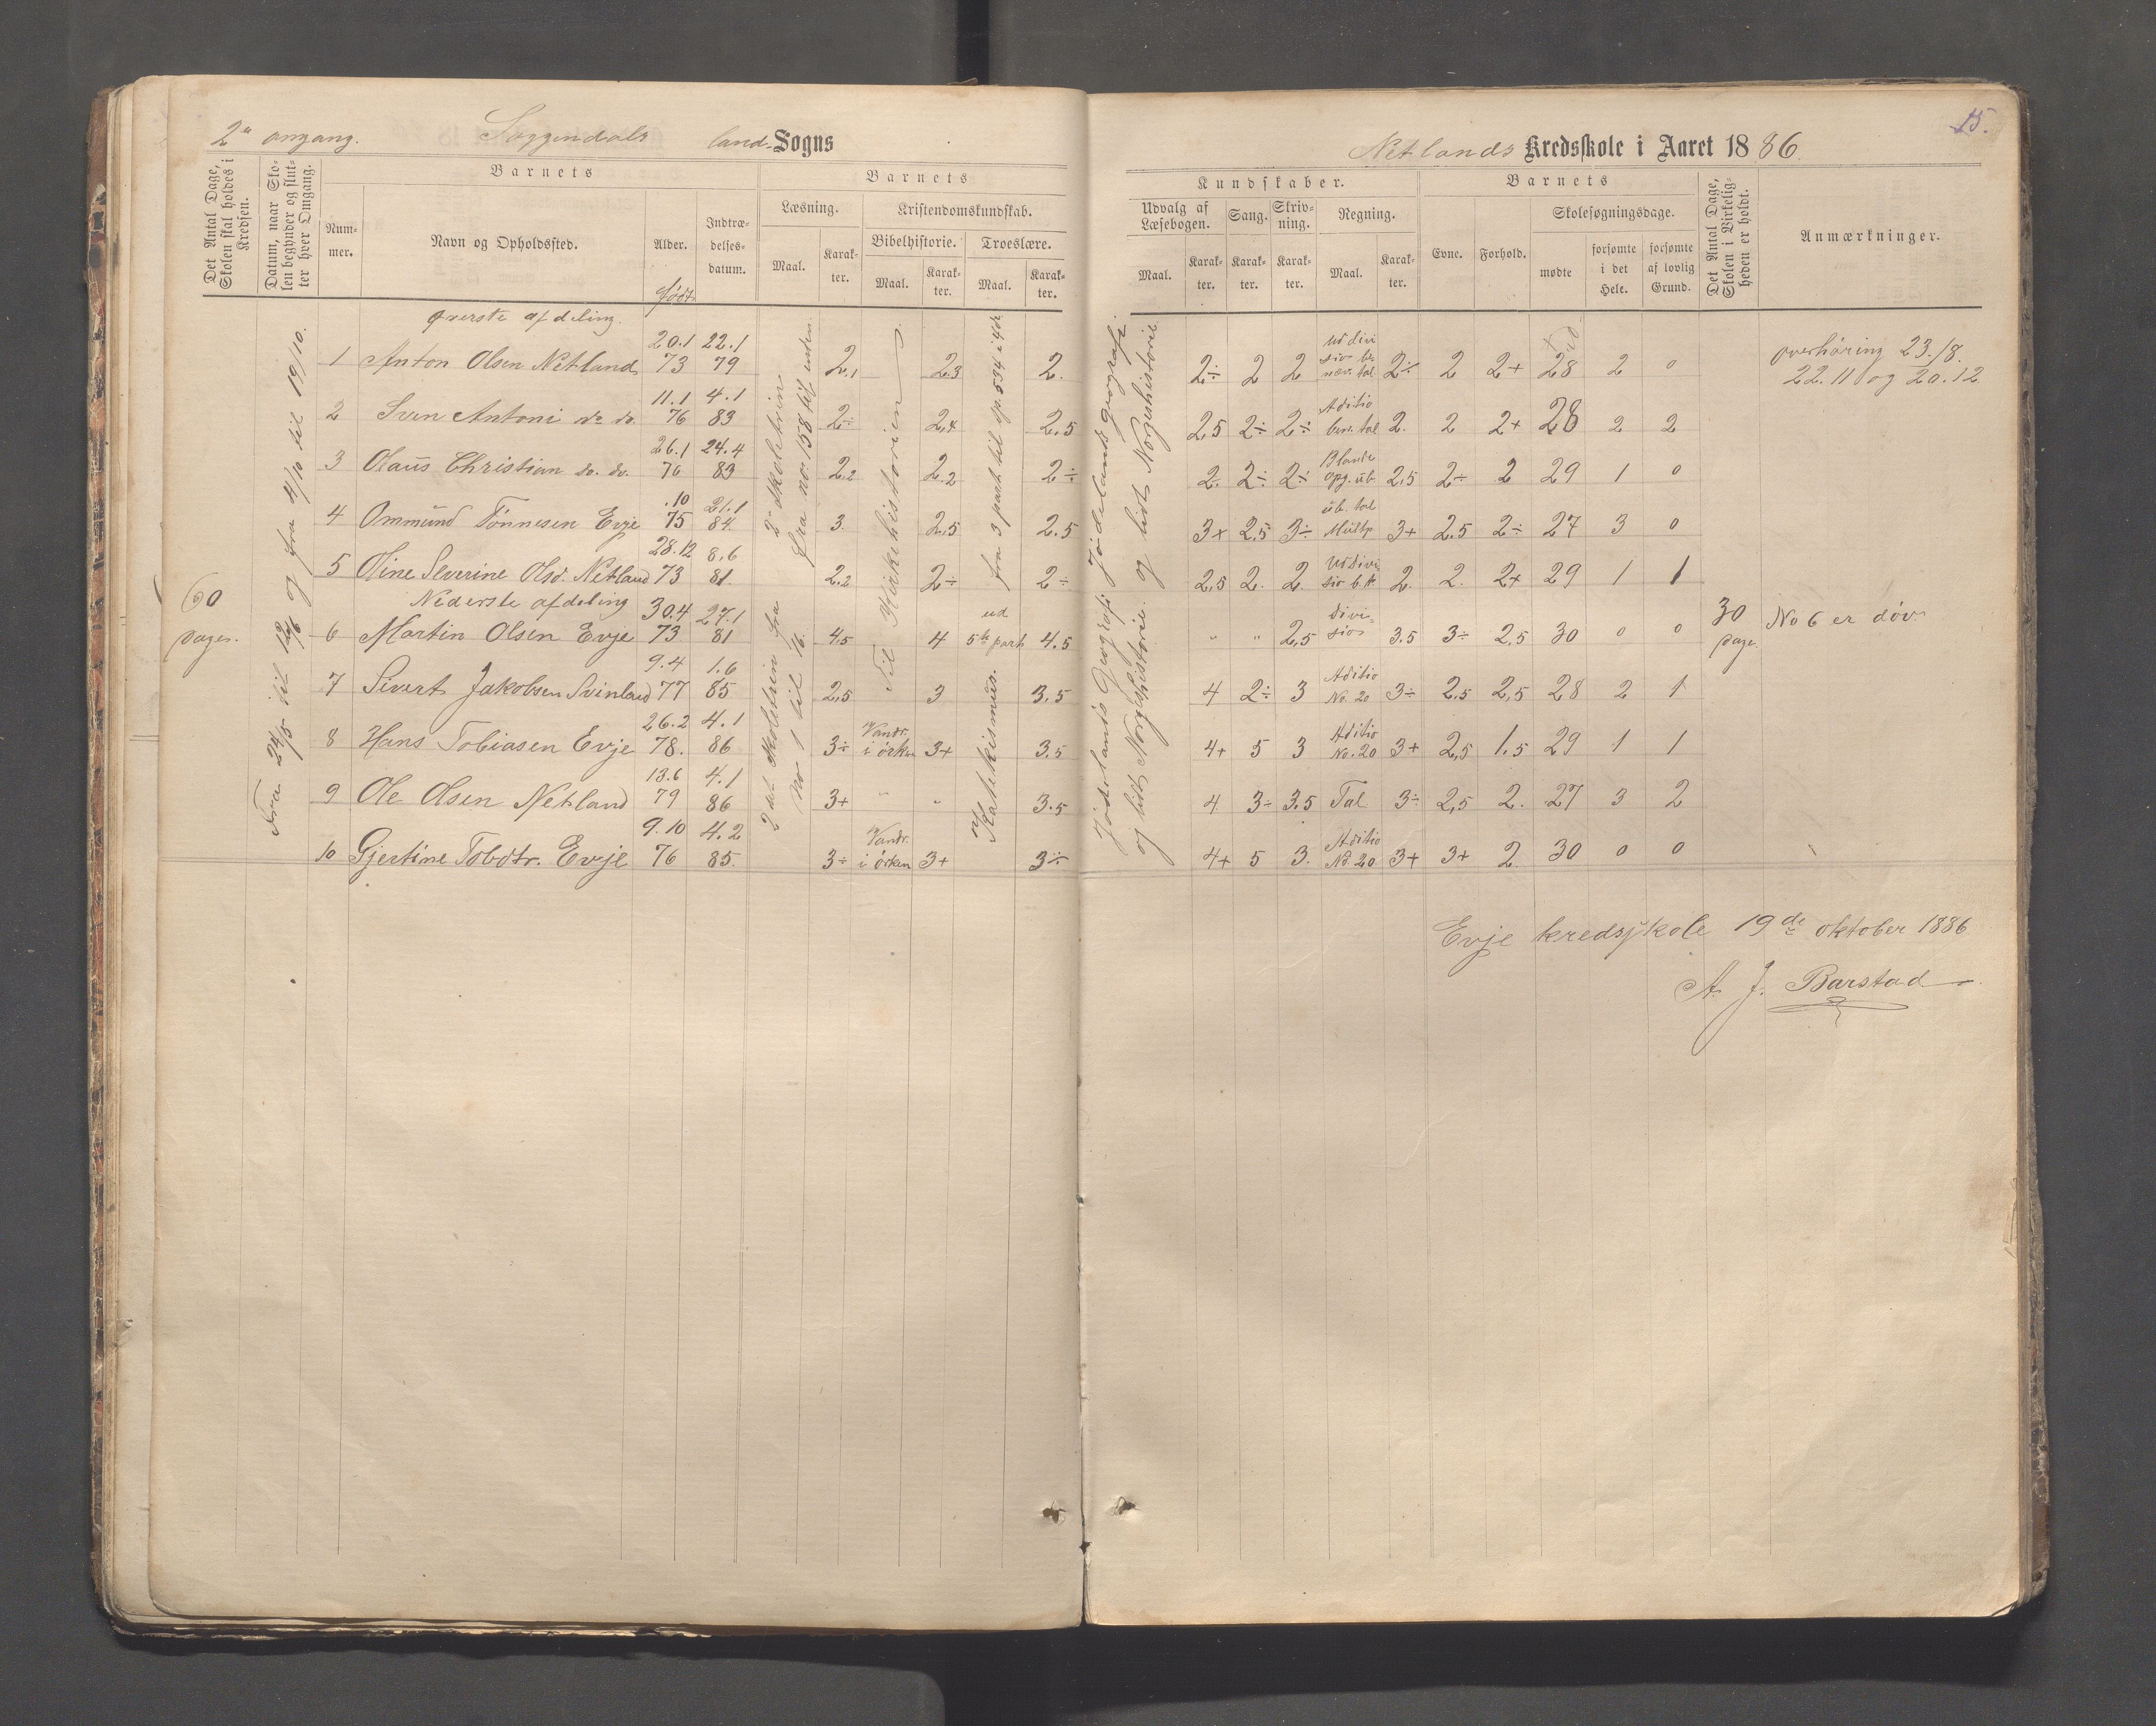 2n omgang. Soggendals land- Sogns
Netlands Kredsskole i Aaret 1886
15.
Det Antal Dage, Skolen skal holdes i Kredsen.
Datum, naar Skolen begynder og slutter hver Omgang.
Barnets
Nummer.
Navn og Opholdssted.
Alder.
født
Indtrædelsesdatum.
Barnets
Læsning.
Maal.
Karakter.
Kristendomskundskab.
Bibelhistorie.
Maal.
Karakter.
Troeslære.
Maal.
Karakter.
Kundskaber.
Udvalg af Læsebogen.
Maal.
Karakter.
Sang.
Karakter.
Skrivning.
Karakter.
Regning.
Maal.
Karakter.
Barnets
Evne.
Forhold.
Skolesøgningsdage.
mødte
forsømte i det Hele.
forsømte af lovlig Grund.
Det Antal Dage, Skolen i Virkeligheden er holdt.
Anmærkninger.
60 dage.
Fra 24/5 til 12/6 og fra 4/10 til 19/10.
øverste afdeling.
1 Anton Olsen Netland 20.1 73 22.1 79 2.1 2.3 2. 2÷ 2 2 2÷ 2 2+ 28 2 0 overhøring 23./8. 22.11 og 20.12
2 Sven Antoni do do. 11.1 76 4.1 83 2÷ 2,4 2,5 2,5 2÷ 2÷ Aditio ben. tal 2. 2 2+ 28 2 2
3 Olaüs Christian do. do. 26.1 76 24.4 83 2.2 2.2 2÷ 2. 2÷ 2÷ Blande opg. üb. 2,5 2÷ 2 29 1 0
4 Ommünd Tönnesen Evje .10 75 21.1 84. 3. 2,5 2.5 3+ 2,5 3÷ üb. tal Mültp 3+ 2.5 2÷ 27 3 0
5 Oline Severine Olsd. Netland 28.12 73 8.6 81. 2.2 2÷ 2÷ 2,5 2. 2. 2. 2. 2+ 29 1 1
Nederste afdeling
6 Martin Olsen Evje 30.4 73 27.1 81 4.5 4 ud 5te part 4.5 " " 2,5 Divisio 3.5 3÷ 2,5 30 0 0 30 dage No 6 er døv
7 Sivert Jakobsen Svinland 9.4 77 1.6 85 2,5 3 3.5 4 2÷ 3 Aditio No. 20 3÷ 2,5 2,5 28 2 1
8 Hans Tobiasen Evje 26.2 78. 4.1 86 3÷ Vandr. i ørken 3+ 3.5 4+ 5 3 Aditio No. 20 3+ 2,5 1.5 29 1 1
9 Ole Olsen Netland 13.6 79 4.1 86 3+ " " 3.5 4 3÷ 3.5 Tal 3÷ 2,5 2. 27 3 2
10 Gjertine Tobdtr. Evje 9.10 76 4.2 85. 3÷ Vandr. i ørken 3+ 3÷ 4+ 5 3. Aditio No. 20 3+ 3+ 2 30 0 0
2n skoletrin fra no. 158 til enden.
2det skoletrin fra no 1 til 16.
Til Kirkehistorien
fra 3 part til sp. 534 i
Katekismus.
Jæderlands geografi og lidt Norgeshistorie.
Jæderlands Geografi og lidt Norgeshistorie.
Evje kredsskole 19de oktober 1886
A. J. Barstad